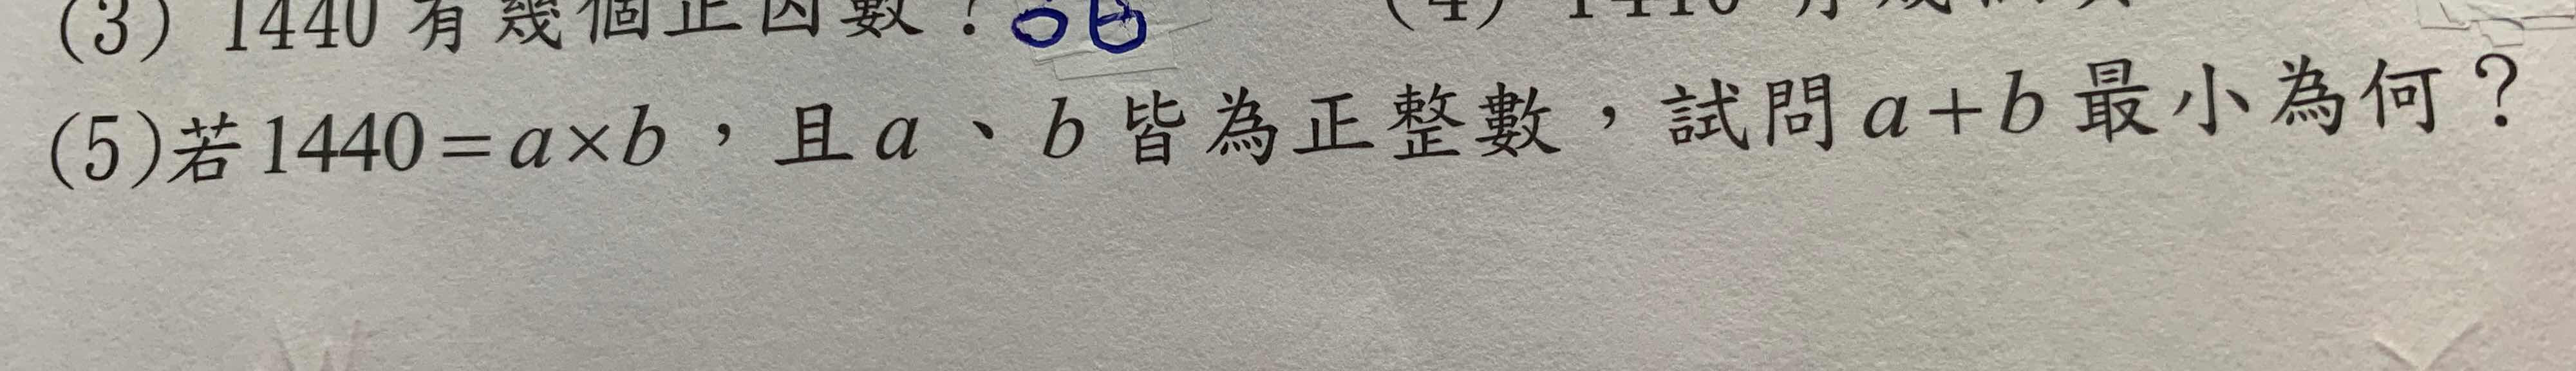 (3) 1440 有幾個正因數？36
(5)若1440=a×b，且a、b皆為正整數，試問a+b最小為何？